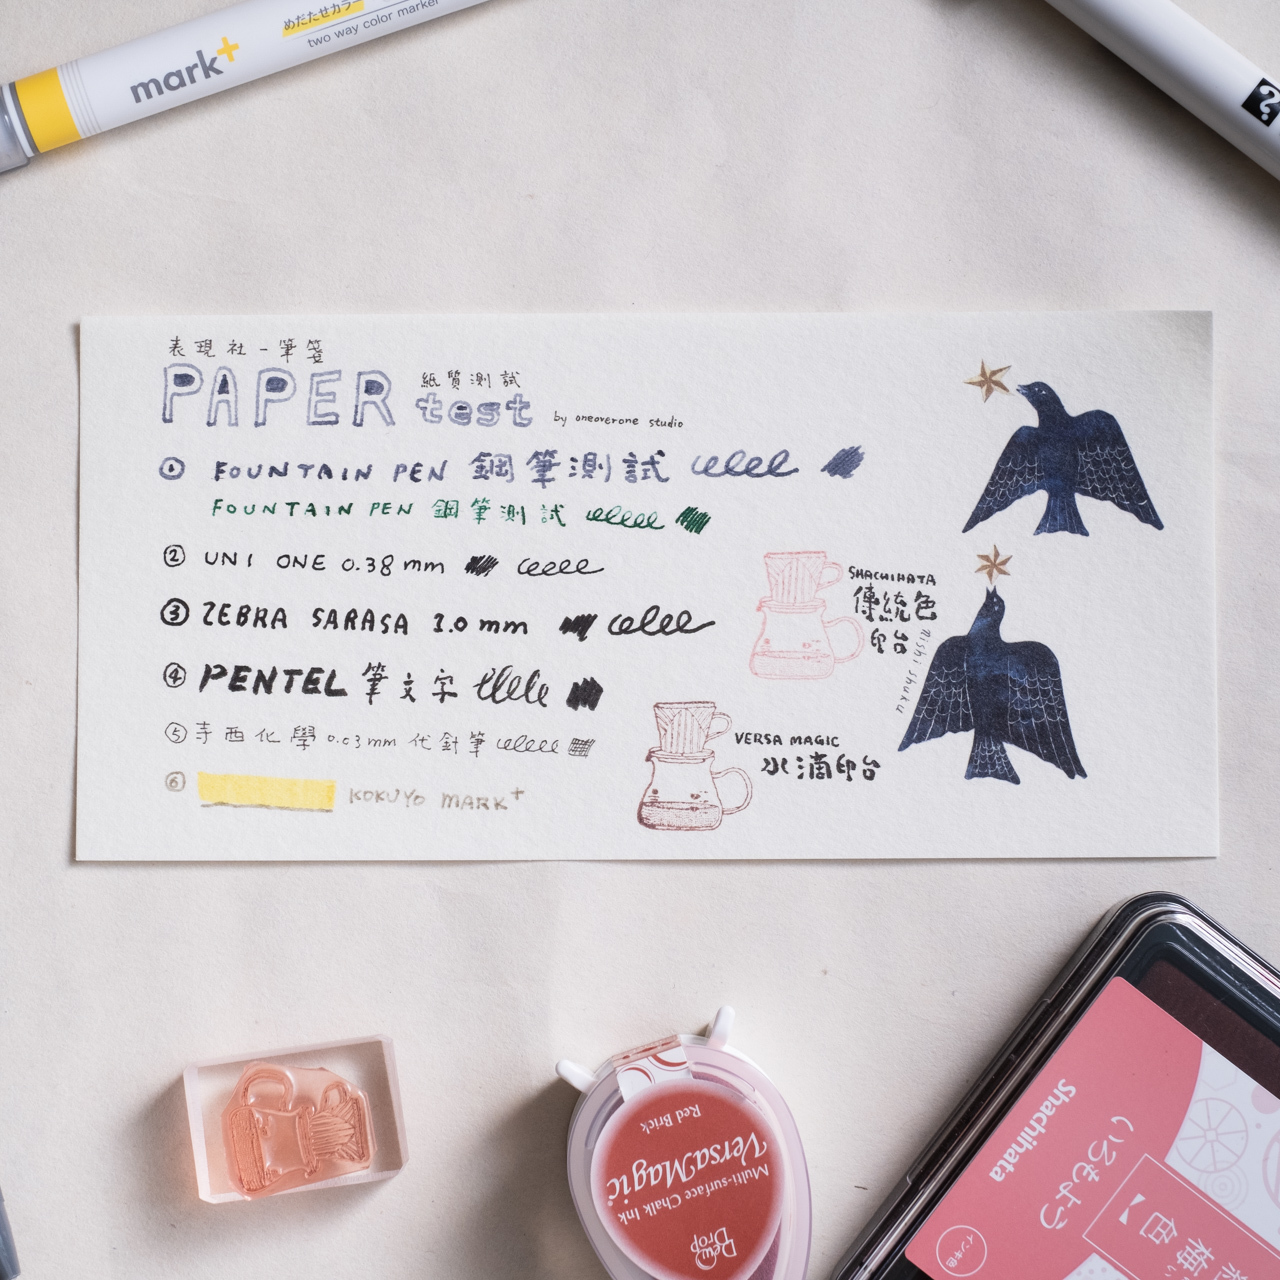 mark+
めだたせカラー
two way color marker
?
表現社-筆箋
PAPER test 紙質測試
by oneoverone studio
① FOUNTAIN PEN 鋼筆測試
FOUNTAIN PEN 鋼筆測試
② UNI ONE 0.38mm
③ ZEBRA SARASA 1.0mm
④ PENTEL 筆文字
⑤ 寺西化學 0.03mm 代針筆
⑥ KOKUYO MARK+
SHACHIHATA
傳統色
印台
nishi shuku
VERSA MAGIC
水滴印台
Red Brick
VersaMagic
Multi-surface Chalk Ink
Dew Drop
Shachihata
いろもよう
梅色
インキ色